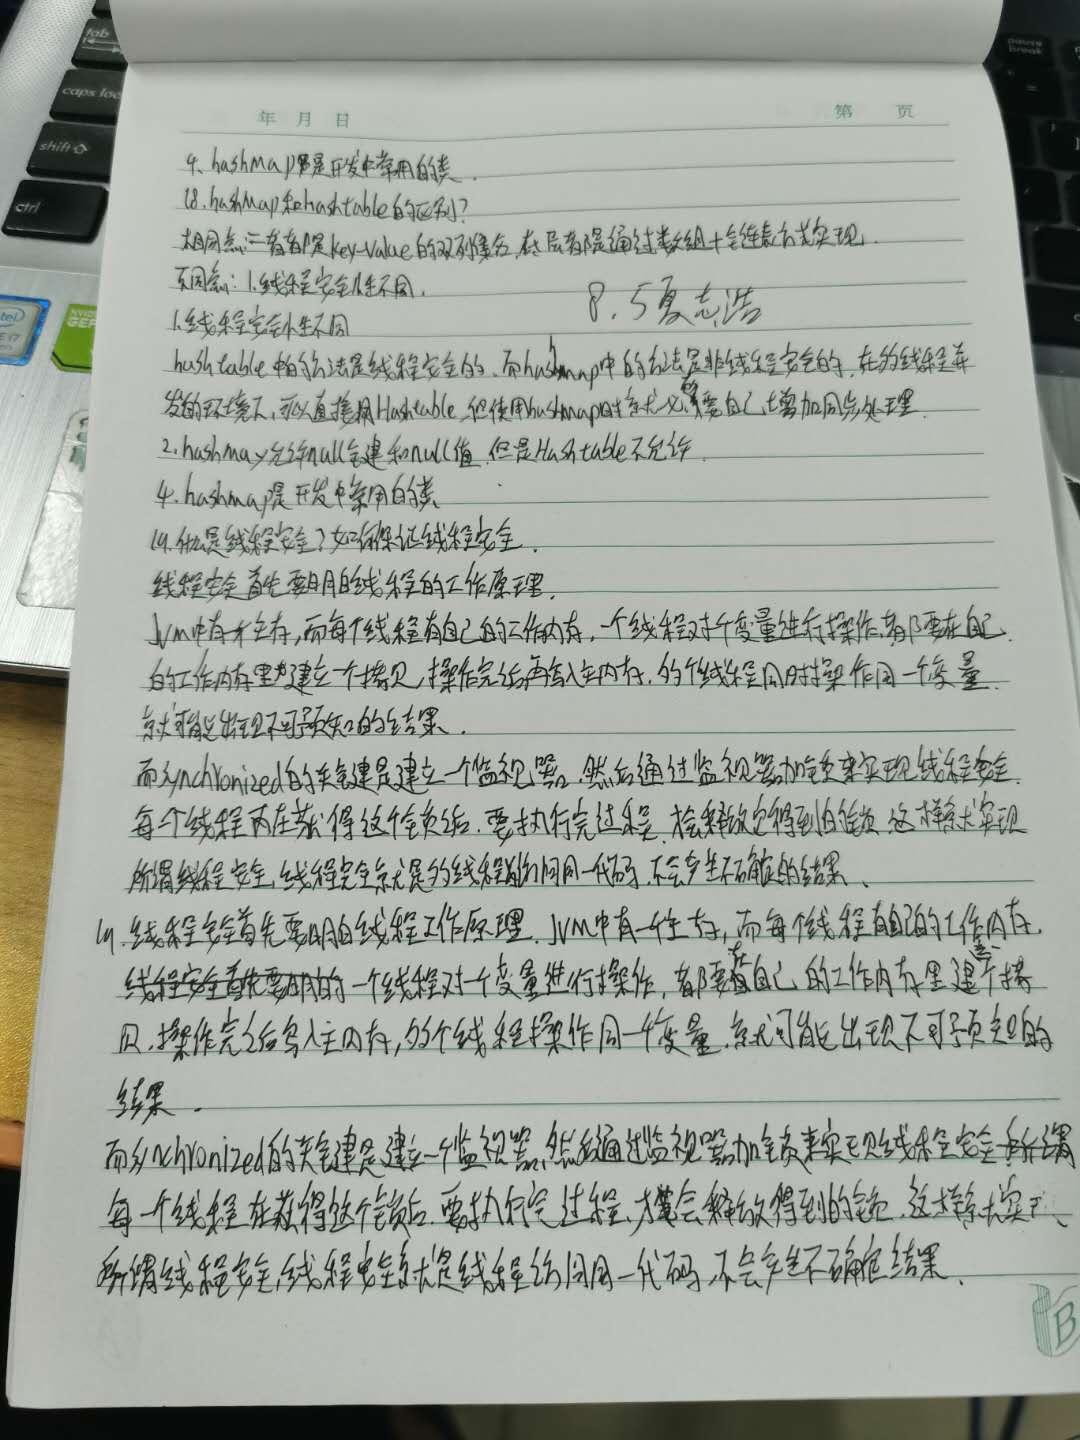 tab
caps loc
shift
ctrl
pause break
intel
NVIDIA
年 月 日 第 页
4、hashMap是开发中常用的类.
18.hashMap和Hashtable的区别?
相同点:二者都是key-value的双列集合,底层都是通过数组+链表方式实现.
不同点:1.线程安全性不同.
8.5夏志浩
1.线程安全性不同
hashtable中的方法是线程安全的,而hashmap中的方法是非线程安全的,在多线程并
发的环境下,可以直接用Hashtable,但使用hashmap时就必须要自己增加同步处理
2.hashmap允许null键和null值,但是Hashtable不允许.
4.hashmap是开发中常用的类
19.什么是线程安全?如何保证线程安全.
线程安全首先要明白线程的工作原理.
JVM中有个主存,而每个线程有自己的工作内存,一个线程对个变量进行操作,都要在自己
的工作内存里建立一个拷贝,操作完后再写入主内存,多个线程同时操作同一个变量
就可能出现不可预知的结果.
而synchronized的关键是建立一个监视器,然后通过监视器加锁来实现线程安全.
每个线程在获得这个锁后,要执行完过程,会释放它得到的锁 这样就实现
所谓线程安全,线程安全就是多线程访问同一代码,不会产生不确定的结果、
19.线程安全首先要明白线程工作原理,JVM中有一个主存,而每个线程有自己的工作内存,
一个线程对一个变量进行操作,都要在自己的工作内存里建立个拷
贝,操作完之后写入主内存,多个线程操作同一个变量,就可能出现不可预知的
结果.
而synchronized的关键是建立一个监视器,然后通过监视器加锁来实现线程安全
每一个线程在获得这个锁后,要执行完过程,才会释放得到的锁,这样就实现
所谓线程安全,线程安全就是线程访问同一代码,不会产生不确定结果.
B